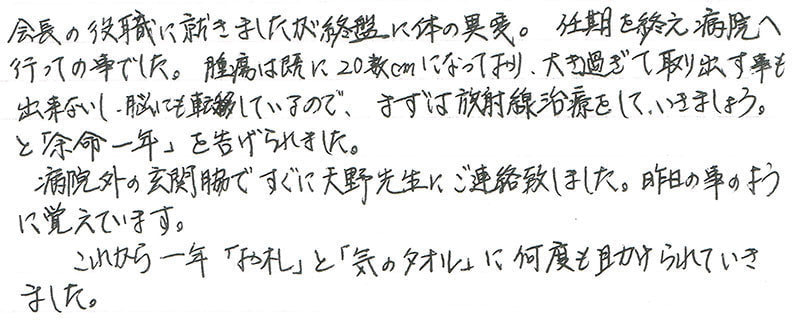 会長の役職に就きましたが終盤に体の異変。 任期を終え病院へ
行っての事でした。腫瘍は既に20数cmになっており、大き過ぎて取り出す事も
出来ないし、脳にも転移しているので、まずは放射線治療をして、いきましょう。
と「余命一年」を告げられました。
病院外の玄関脇ですぐに天野先生にご連絡致しました。昨日の事のよう
に覚えています。
これから一年「お札」と「気のタオル」に何度も助けられていき
ました。